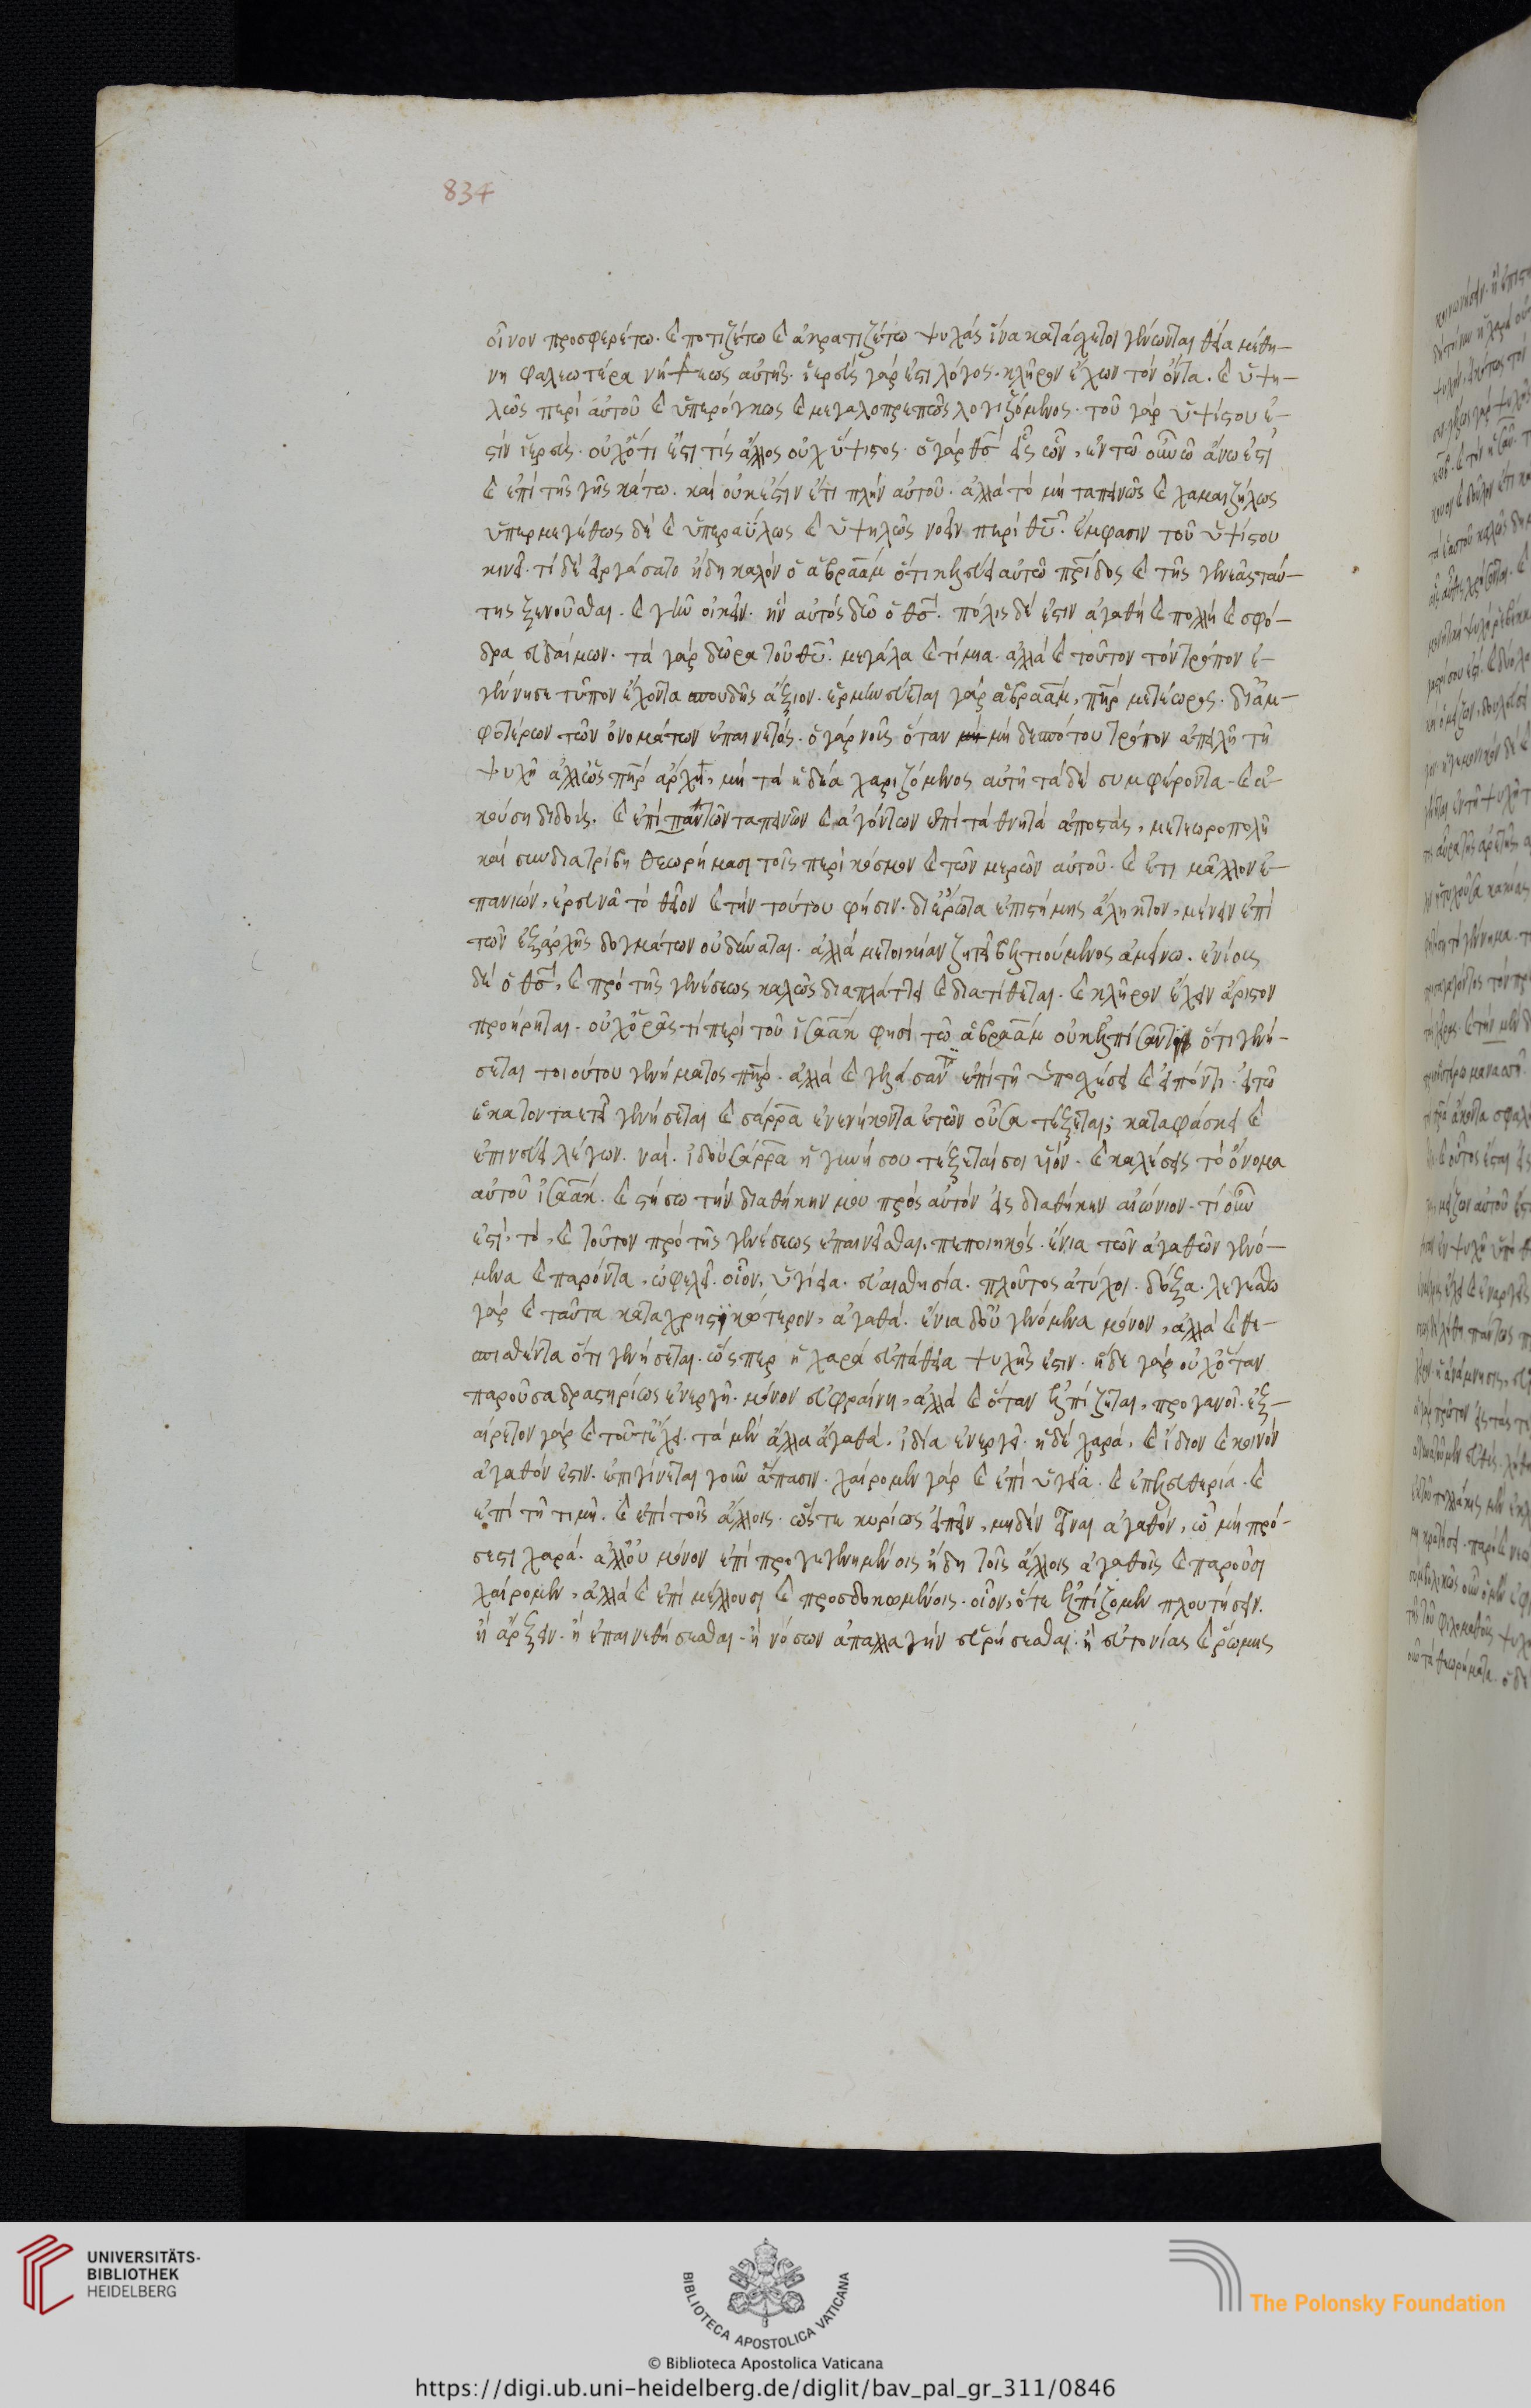 834
οἶνον προσφερέτω. καὶ ποτιζέτω καὶ ἀκρατιζέτω ψυχὰς ἵνα κατάσχετοι γένωνται θεία μέθη-
νηφαλεωτέρα νήψεως αὐτῆς. ἱερεὺς γάρ ἐστι λόγος. κλῆρον ἔχων τὸν ὄντα. καὶ ὑψη-
λῶς περὶ αὐτοῦ καὶ ὑπερόγκως καὶ μεγαλοπρεπῶς λογιζόμενος. τοῦ γὰρ ὑψίστου ἐ-
στὶν ἱερεύς. οὐχ ὅτι ἔστι τὶς ἄλλος οὐχ ὕψιστος. ὁ γὰρ θς εἷς ὢν, ἐν τῶ οὐνῶ ἄνω ἐστὶ
καὶ ἐπὶ τῆς γῆς κάτω. καὶ οὐκ ἔστιν ἔτι πλὴν αὐτοῦ. ἀλλὰ τὸ μὴ ταπεινῶς καὶ χαμαιζήλως
ὑπερμεγέθως δὲ καὶ ὑπεραΰλως καὶ ὑψηλῶς νοεῖν περὶ θυ. ἔμφασιν τοῦ ὑψίστου
κινεῖ. τί δὲ εἰργάσατο ἤδη καλὸν ὁ ἀβραὰμ ὅτι κελεύει αὐτῶ πρίδος καὶ τῆς γενεᾶς ταύ-
της ξενοῦσθαι. καὶ γῆν οἰκεῖν. ἣν αὐτὸς δῶ ὁ θς. πόλις δέ ἐστιν ἀγαθὴ καὶ πολλὴ καὶ σφό-
δρα εὐδαίμων. τὰ γὰρ δῶρα τοῦ θυ. μεγάλα καὶ τίμια. ἀλλὰ καὶ τοῦτον τὸν τρόπον ἐ-
γέννησε τύπον ἔχοντα σπουδῆς ἄξιον. ἑρμηνεύεται γὰρ ἀβραὰμ, πηρ μετέωρος. δι' ἀμ-
φοτέρων τῶν ὀνομάτων ἐπαινετός. ὁ γὰρ νοῦς ὅταν μὴ μὴ δεσπότου τρόπον ἀπειλῆ τῆ
ψυχῆ ἀλλ' ὡς πηρ ἄρχη, μὴ τὰ ἡδέα χαριζόμενος αὐτῆ τὰ δὲ συμφέροντα. καὶ ἀ-
κούση διδούς. καὶ ἐπὶ πάντων ταπεινῶν καὶ ἀγόντων ἐπὶ τὰ θνητὰ ἀποστὰς, μετεωροπολῆ
καὶ συνδιατρίβη θεωρήμασι τοῖς περὶ κόσμον καὶ τῶν μερῶν αὐτοῦ. καὶ ἔτι μᾶλλον ἐ-
πανιὼν, ἐρευνᾶ τὸ θεῖον καὶ τὴν τούτου φύσιν. δι' ἔρωτα ἐπιστήμης ἄληκτον, μένειν ἐπὶ
τῶν ἐξ ἀρχῆς δογμάτων οὐ δύναται. ἀλλὰ μετοικίαν ζητεῖ βελτιούμενος ἀμείνω. ἐνίους
δὲ ὁ θς, καὶ πρὸ τῆς γενέσεως καλῶς διαπλάττει καὶ διατίθεται. καὶ κλῆρον ἔχειν ἄριστον
προήρηται. οὐχ ὁρᾶς τί περὶ τοῦ ἰσαὰκ φησὶ τῶ ἀβραὰμ οὐκ ἐλπίσαντι ὅτι γενή-
σεται τοιούτου γεννήματος πηρ. ἀλλὰ καὶ γελάσαντι ἐπὶ τῆ ὑποσχέσει καὶ εἰπόντι. εἰ τῶ
ἑκατονταετεῖ γενήσεται καὶ σάρρα ἐνενήκοντα ἐτῶν οὖσα τέξεται; καταφάσκει καὶ
ἐπινεύει λέγων. ναί. ἰδοὺ σάρρα ἡ γυνή σου τέξεταί σοι υἱόν. καὶ καλέσεις τὸ ὄνομα
αὐτοῦ ἰσαάκ. καὶ στήσω τὴν διαθήκην μου πρὸς αὐτὸν εἰς διαθήκην αἰώνιον. τί οὖν
ἐστι, τὸ, καὶ τοῦτον πρὸ τῆς γενέσεως ἐπαινεῖσθαι, πεποιηκός. ἔνια τῶν ἀγαθῶν γενό-
μενα καὶ παρόντα, ὠφελεῖ. οἷον, ὑγίεια. εὐαισθησία. πλοῦτος ἀτύχοι. δόξα. λεγέσθω
γὰρ καὶ ταῦτα καταχρηστικώτερον, ἀγαθά. ἔνια δ' οὐ γενόμενα μόνον, ἀλλὰ καὶ θε-
σπισθέντα ὅτι γενήσεται. ὥσπερ ἡ χαρὰ εὐπάθεια ψυχῆς ἐστιν. ἥδε γὰρ οὐχ ὅταν
παροῦσα δραστηρίως ἐνεργῆ. μόνον εὐφραίνη, ἀλλὰ καὶ ὅταν ἐλπίζηται, προγανοῖ. ἐξ-
αίρετον γὰρ καὶ τοῦτ' ἔχει. τὰ μὲν ἄλλα ἀγαθά. ἰδία ἐνεργεῖ. ἡ δὲ χαρά, καὶ ἴδιον καὶ κοινὸν
ἀγαθόν ἐστιν. ἐπιγίνεται γοῦν ἅπασιν. χαίρομεν γὰρ καὶ ἐπὶ ὑγεία. καὶ ἐπ' ἐλευθερία. καὶ
ἐπὶ τῆ τιμῆ. καὶ ἐπὶ τοῖς ἄλλοις. ὥστε κυρίως εἰπεῖν, μηδὲν εἶναι ἀγαθὸν, ὧ μὴ πρό-
σεστι χαρά. ἀλλ' οὐ μόνον ἐπὶ προγεγενημένοις ἤδη τοῖς ἄλλοις ἀγαθοῖς καὶ παροῦσι
χαίρομεν, ἀλλὰ καὶ ἐπὶ μέλλουσι καὶ προσδοκωμένοις. οἷον, ὅτε ἐλπίζομεν πλουτήσειν.
ἢ ἄρξειν. ἢ ἐπαινεθήσεσθαι. ἢ νόσων ἀπαλλαγὴν εὑρήσεσθαι. ἢ εὐτονίας καὶ ῥώμης
UNIVERSITÄTS-
BIBLIOTHEK
HEIDELBERG
BIBLIOTECA APOSTOLICA VATICANA
The Polonsky Foundation
© Biblioteca Apostolica Vaticana
https://digi.ub.uni-heidelberg.de/diglit/bav_pal_gr_311/0846